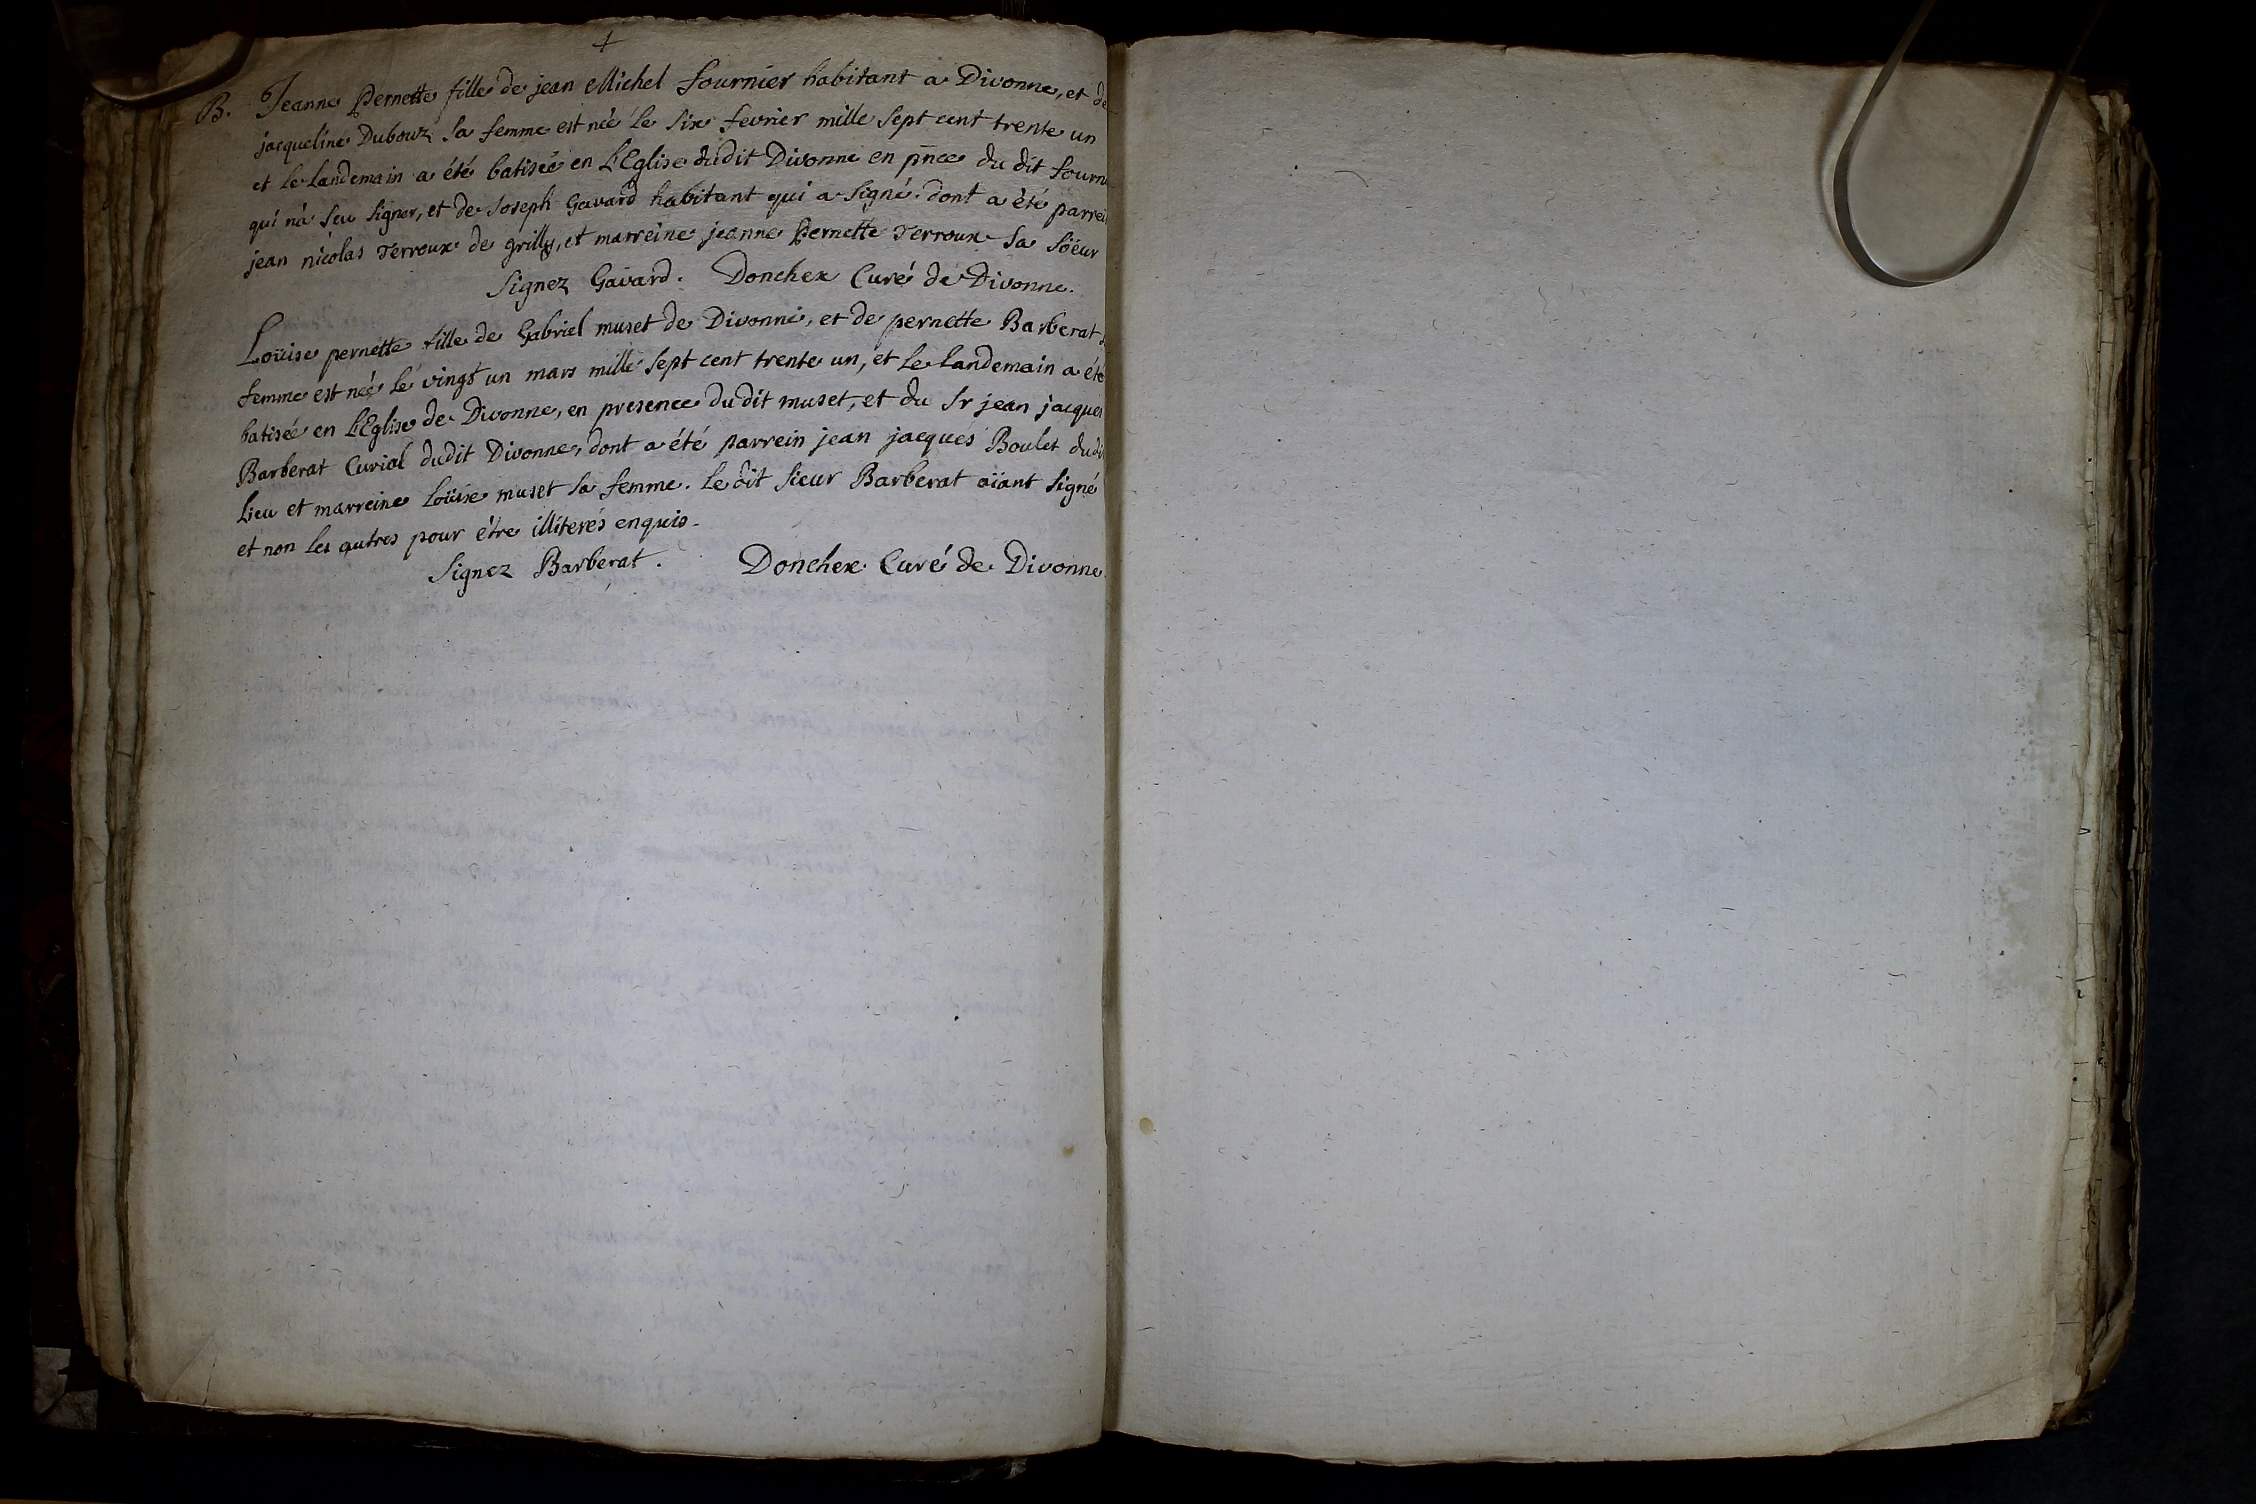 B. Jeanne Pernette fille de jean Michel fournier habitant a Divonne, et de
jacqueline Dubouz sa femme est née le six fevrier mille sept cent trente un
et le landemain a été batiseé en L'Eglise dudit Divonne en pñce du dit fourni
qui n'a seu signer, et de Joseph Gavard habitant qui a signé. dont a été parrei
jean nicolas Terroux de grilly, et marreine jeanne Pernette Terroux sa söeur
Signez Gavard. Donchex Curé de Divonne.
Loüise pernette fille de Gabriel muset de Divonne, et de pernette Barberat
femme est née le vingt un mars mille sept cent trente un, et le landemain a été
batiseé en L'Eglise de Divonne, en presence du dit muset, et du Sr jean jacques
Barberat Curial dudit Divonne, dont a été parrein jean jacques Boulet dudi
lieu et marreine Loüise muset sa femme. le dit sieur Barberat aïant signé
et non les autres pour être illiterés enquis.
Signez Barberat. Donchex Curé de Divonne.